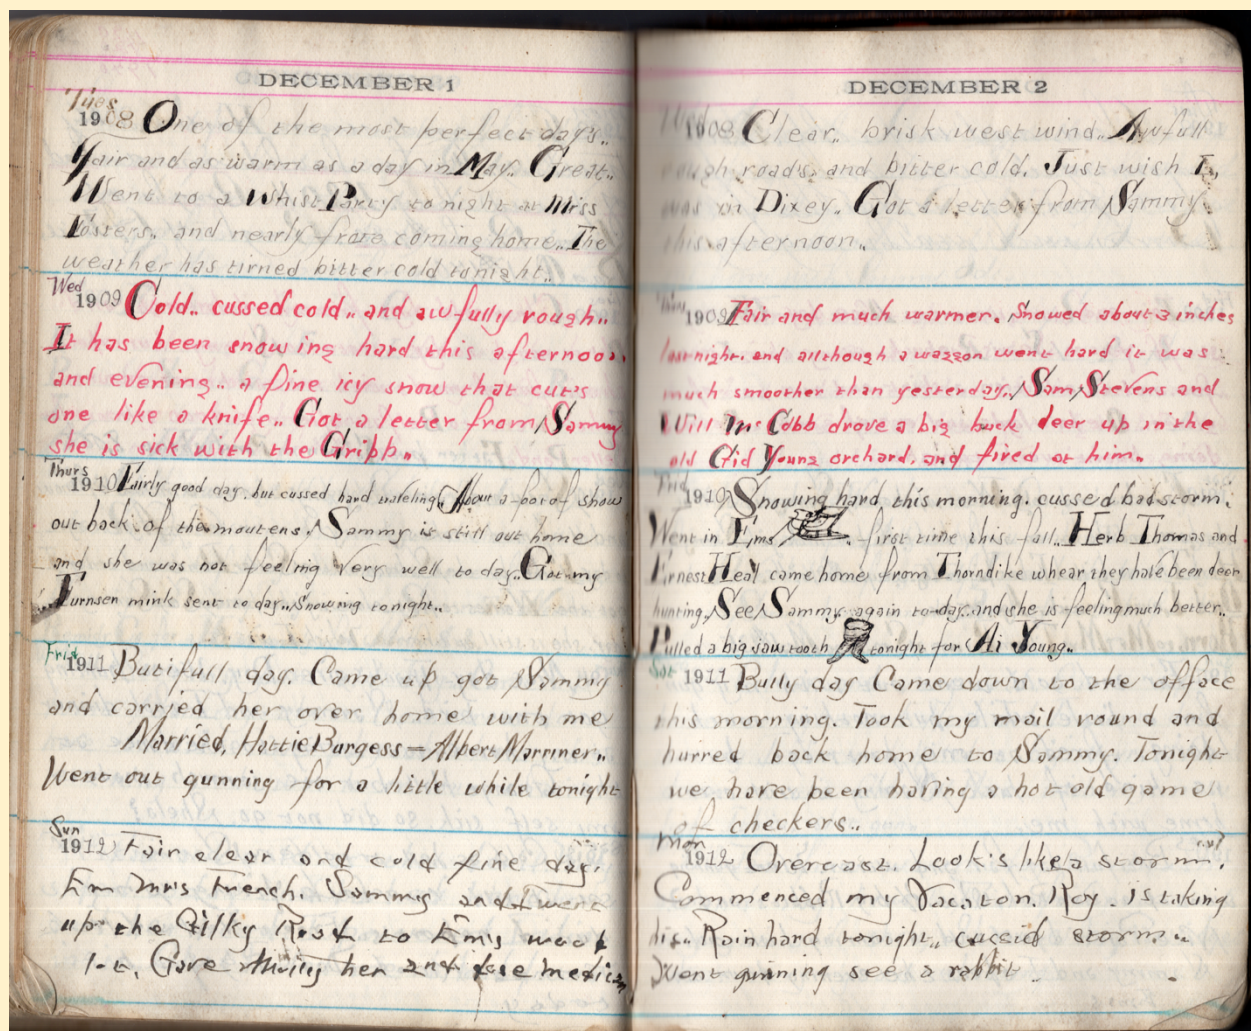 DECEMBER 1
Tues
1908 One of the most perfect day's..
Fair and as warm as a day in May. Great..
Went to a Whist Party to night at Miss
Fosters.. and nearly froze coming home.. The
weather has tirned bitter cold tonight..
Wed
1909 Cold.. cussed cold.. and awfully rough..
It has been snowing hard this afternoon.
and evening.. a fine icy snow that cut's
one like a knife.. Got a letter from Sammy
she is sick with the Gripp..
Thurs
1910 Fairly good day, but cussed hard traveling. About a foot of snow
out back of the moutens. Sammy is still out home
and she was not feeling very well to day.. Got my
mink sent to day.. Snowing tonight..
Fri
1911 Butifull day. Came up got Sammy
and carried her over home with me
Married, Hattie Burgess — Albert Marriner..
Went out gunning for a little while tonight
Sun
1912 Fair clear and cold fine day.
Em Mrs French. Sammy and I went
up the Gilky Road to Em's wood
lot. Gave her and dose medicin
DECEMBER 2
Wed
1908 Clear.. brisk west wind.. Awfull
rough road's, and bitter cold. Just wish I,
was in Dixey. Got a letter from Sammy
this afternoon..
1909 Fair and much warmer. Snowed about 3 inches
last night. and allthough a waggon went hard it was
much smoother than yesterday. Sam Stevens and
Will Mc Cobb drove a big buck deer up in the
old Gid Young orchard, and fired at him..
Fri
1910 Snowing hard this morning. cussed bad storm.
Went in Em's first time this fall.. Herb Thomas and
Ernest Heal came home from Thorndike whear they have been deer
hunting. See Sammy again to-day.. and she is feeling much better..
Pulled a big saw tooth tonight for Ai Young..
Sat
1911 Bully day Came down to the offace
this morning. Took my mail round and
hurred back home to Sammy. Tonight
we have been having a hot old game
of checkers..
Mon
1912 Overcast. Look's like a storm.
Commenced my Vacaton. Roy. is taking
his.. Rain hard tonight,, cussid storm..
Went gunning see a rabbit